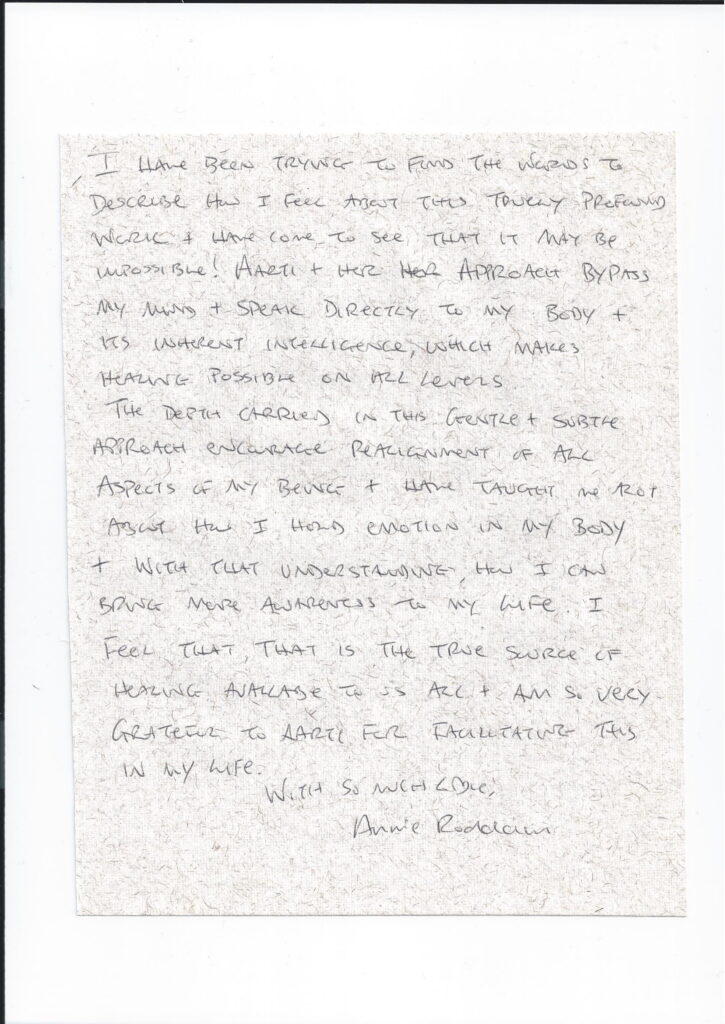 I HAVE BEEN TRYING TO FIND THE WORDS TO
DESCRIBE HOW I FEEL ABOUT THIS TRULY PROFOUND
WORK + HAVE COME TO SEE THAT IT MAY BE
IMPOSSIBLE! AARTI + HER HER APPROACH BYPASS
MY MIND + SPEAK DIRECTLY TO MY BODY +
ITS INHERENT INTELLIGENCE, WHICH MAKES
HEALING POSSIBLE ON ALL LEVELS
THE DEPTH CARRIED IN THIS GENTLE + SUBTLE
APPROACH ENCOURAGE REALIGNMENT OF ALL
ASPECTS OF MY BEING + HAVE TAUGHT ME A LOT
ABOUT HOW I HOLD EMOTION IN MY BODY
+ WITH THAT UNDERSTANDING, HOW I CAN
BRING MORE AWARENESS TO MY LIFE. I
FEEL THAT, THAT IS THE TRUE SOURCE OF
HEALING AVAILABLE TO US ALL + AM SO VERY
GRATEFUL TO AARTI FOR FACILITATING THIS
IN MY LIFE.
WITH SO MUCH LOVE,
Annie